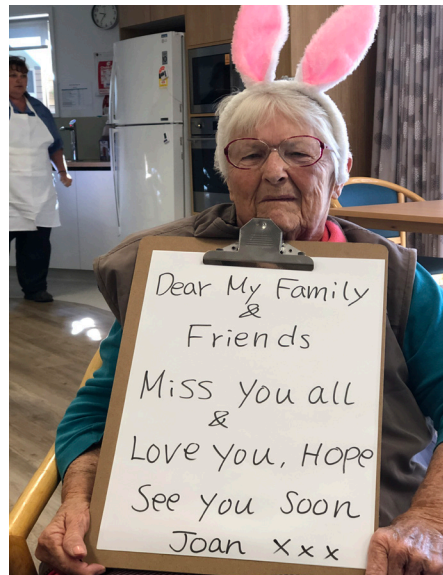 Dear My Family
&
Friends
Miss you all
&
Love you, Hope
See you Soon
Joan xxx